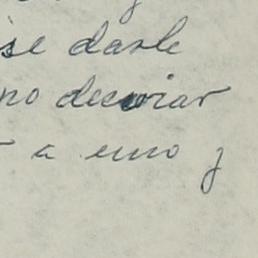 se darle
no decorar
a uno y